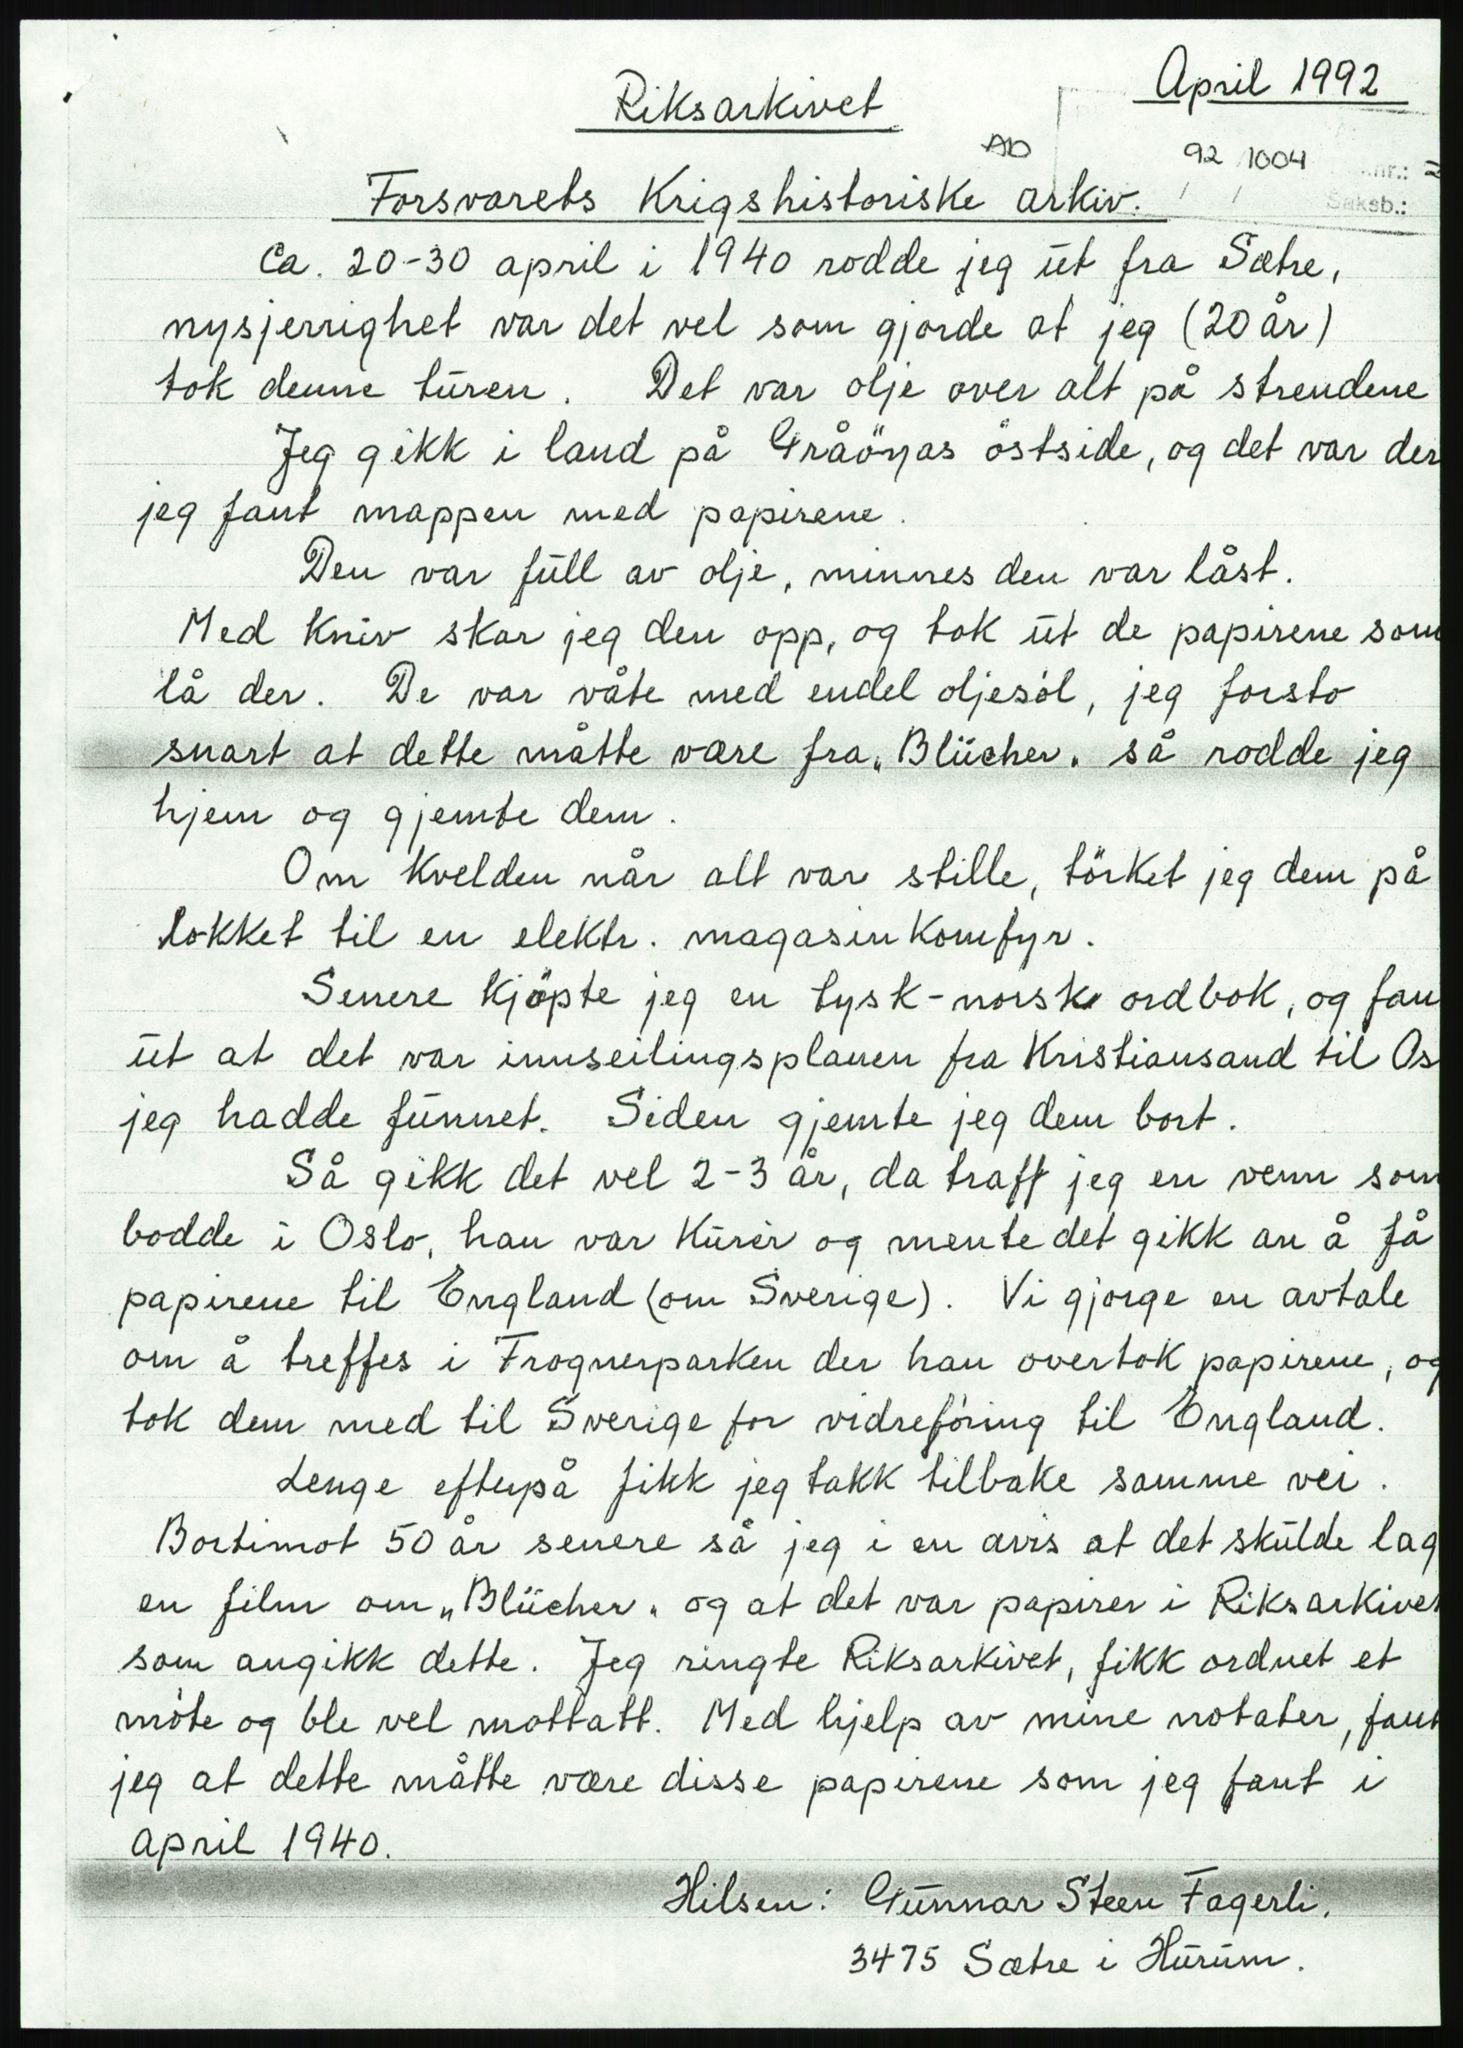 April 1992
Riksarkivet
AD
92 1004
nr.: 2
Saksb.:
Forsvarets Krigshistoriske arkiv.
Ca. 20-30 april i 1940 rodde jeg ut fra Sætre,
nysjerrighet var det vel som gjorde at jeg (20 år)
tok denne turen. Det var olje over alt på strendene
Jeg gikk i land på Gråöyas östside, og det var der
jeg fant mappen med papirene.
Den var full av olje, minnes den var låst.
Med kniv skar jeg den opp, og tok ut de papirene som
lå der. De var våte med endel oljesöl, jeg forsto
snart at dette måtte være fra „Blücher„ så rodde jeg
hjem og gjemte dem.
Om kvelden når alt var stille, törket jeg dem på
lokket til en elektr. magasinkomfyr.
Senere kjöpte jeg en tysk-norsk ordbok, og fan
ut at det var innseilingsplanen fra Kristiansand til Os
jeg hadde funnet. Siden gjemte jeg dem bort.
Så gikk det vel 2-3 år, da traff jeg en venn som
bodde i Oslo, han var kurér og mente det gikk an å få
papirene til England (om Sverige). Vi gjorge en avtale
om å treffes i Frognerparken der han overtok papirene, og
tok dem med til Sverige for vidreföring til England.
Lenge efterpå fikk jeg takk tilbake samme vei.
Bortimot 50 år senere så jeg i en avis at det skulde lag
en film om „Blücher„ og at det var papirer i Riksarkivet
som angikk dette. Jeg ringte Riksarkivet, fikk ordnet et
möte og ble vel mottatt. Med hjelp av mine notater, fant
jeg at dette måtte være disse papirene som jeg fant i
april 1940.
Hilsen: Gunnar Steen Fagerli,
3475 Sætre i Hurum.